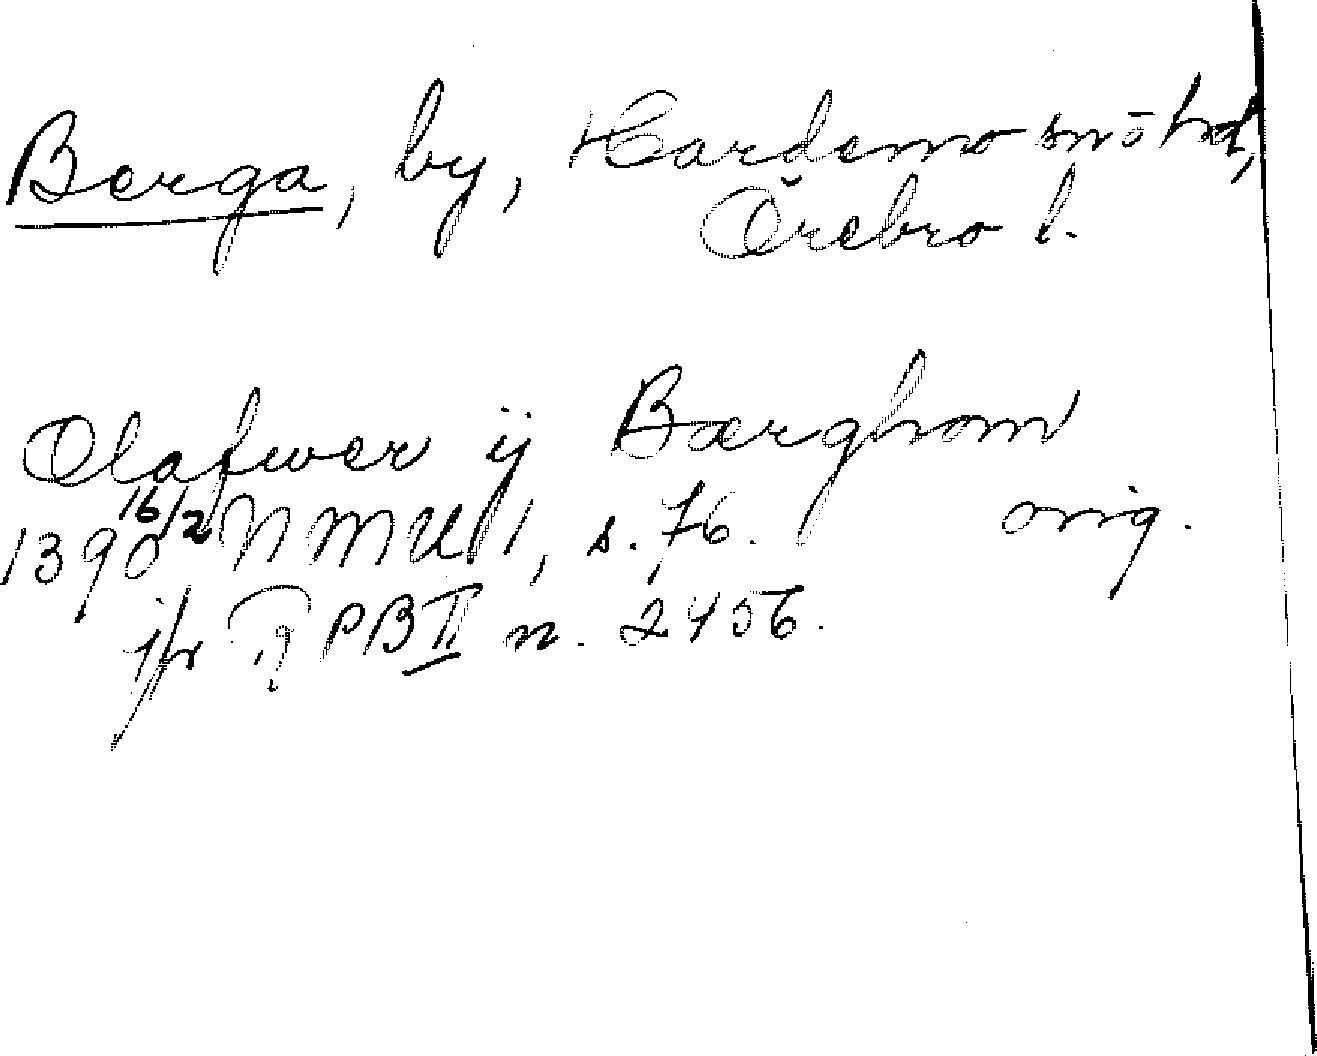 Berga, by, Hardemo sn o hd,
Örebro l.
Olafwer ij Bærghom
1390 16/2 NMU 1, s. 76. orig.
jfr RPB II n. 2456.